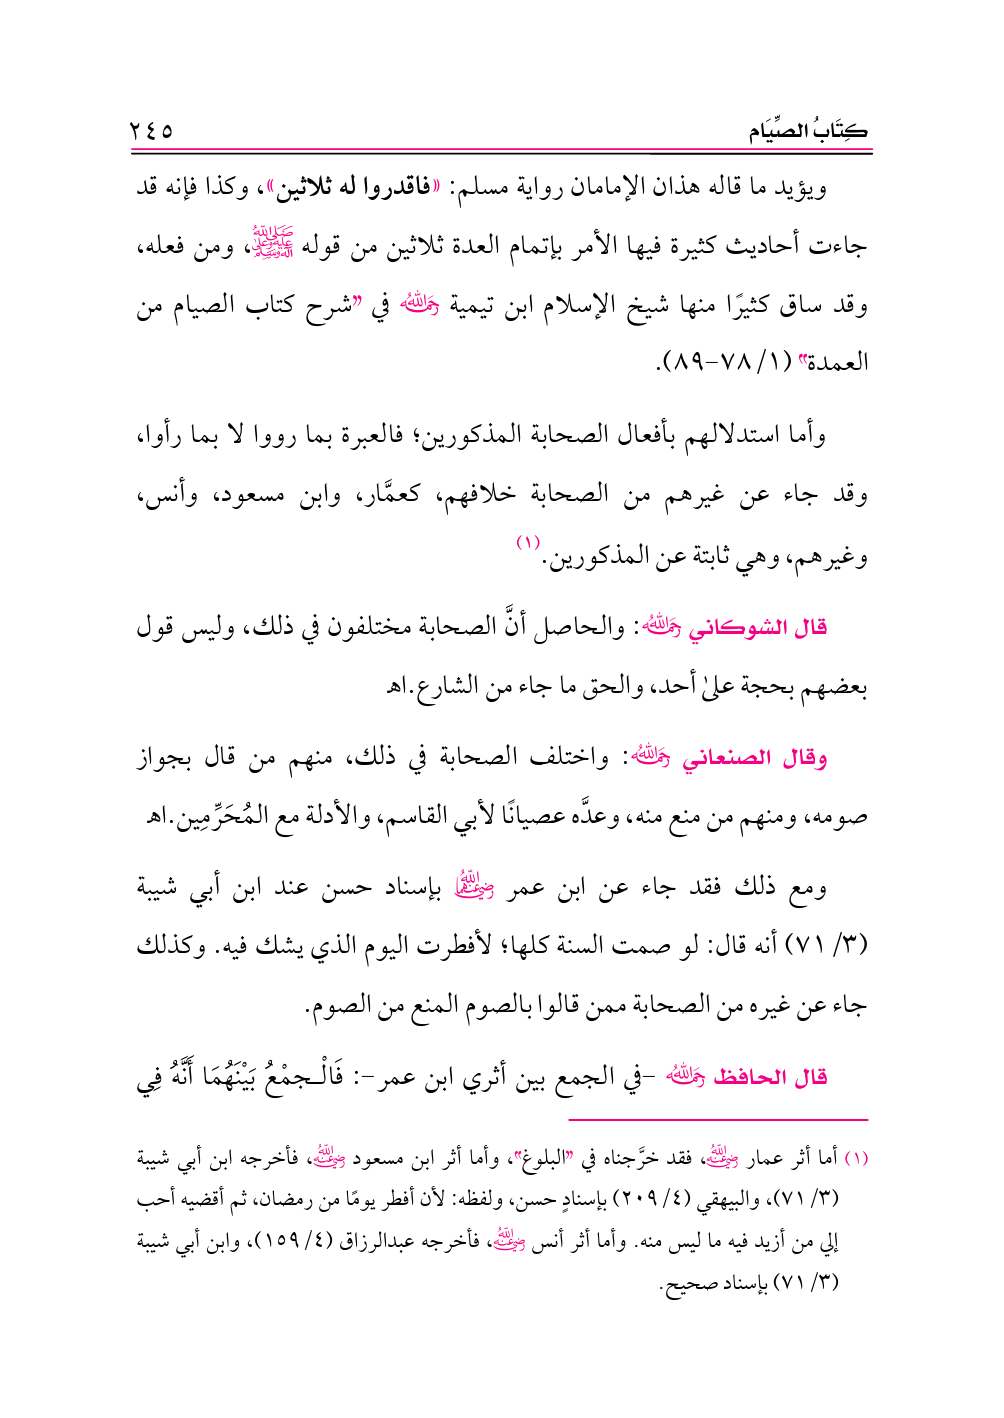 كِتَابُ الصِّيَام ٢٤٥
ويؤيد ما قاله هذان الإمامان رواية مسلم: «فاقدروا له ثلاثين»، وكذا فإنه قد
جاءت أحاديث كثيرة فيها الأمر بإتمام العدة ثلاثين من قوله ﷺ، ومن فعله،
وقد ساق كثيرًا منها شيخ الإسلام ابن تيمية رحمه الله في "شرح كتاب الصيام من
العمدة" (١/ ٧٨-٨٩).
وأما استدلالهم بأفعال الصحابة المذكورين؛ فالعبرة بما رووا لا بما رأوا،
وقد جاء عن غيرهم من الصحابة خلافهم، كعمَّار، وابن مسعود، وأنس،
وغيرهم، وهي ثابتة عن المذكورين.(١)
قال الشوكاني رحمه الله: والحاصل أنَّ الصحابة مختلفون في ذلك، وليس قول
بعضهم بحجة علىٰ أحد، والحق ما جاء من الشارع.اﻫ
وقال الصنعاني رحمه الله: واختلف الصحابة في ذلك، منهم من قال بجواز
صومه، ومنهم من منع منه، وعدَّه عصيانًا لأبي القاسم، والأدلة مع المُحَرِّمِين.اﻫ
ومع ذلك فقد جاء عن ابن عمر رضي الله عنهما بإسناد حسن عند ابن أبي شيبة
(٣/ ٧١) أنه قال: لو صمت السنة كلها؛ لأفطرت اليوم الذي يشك فيه. وكذلك
جاء عن غيره من الصحابة ممن قالوا بالصوم المنع من الصوم.
قال الحافظ رحمه الله -في الجمع بين أثري ابن عمر-: فَالْـجمْعُ بَيْنَهُمَا أَنَّهُ فِي
(١) أما أثر عمار رضي الله عنه، فقد خرَّجناه في "البلوغ"، وأما أثر ابن مسعود رضي الله عنه، فأخرجه ابن أبي شيبة
(٣/ ٧١)، والبيهقي (٤/ ٢٠٩) بإسنادٍ حسن، ولفظه: لأن أفطر يومًا من رمضان، ثم أقضيه أحب
إلي من أزيد فيه ما ليس منه. وأما أثر أنس رضي الله عنه، فأخرجه عبدالرزاق (٤/ ١٥٩)، وابن أبي شيبة
(٣/ ٧١) بإسناد صحيح.